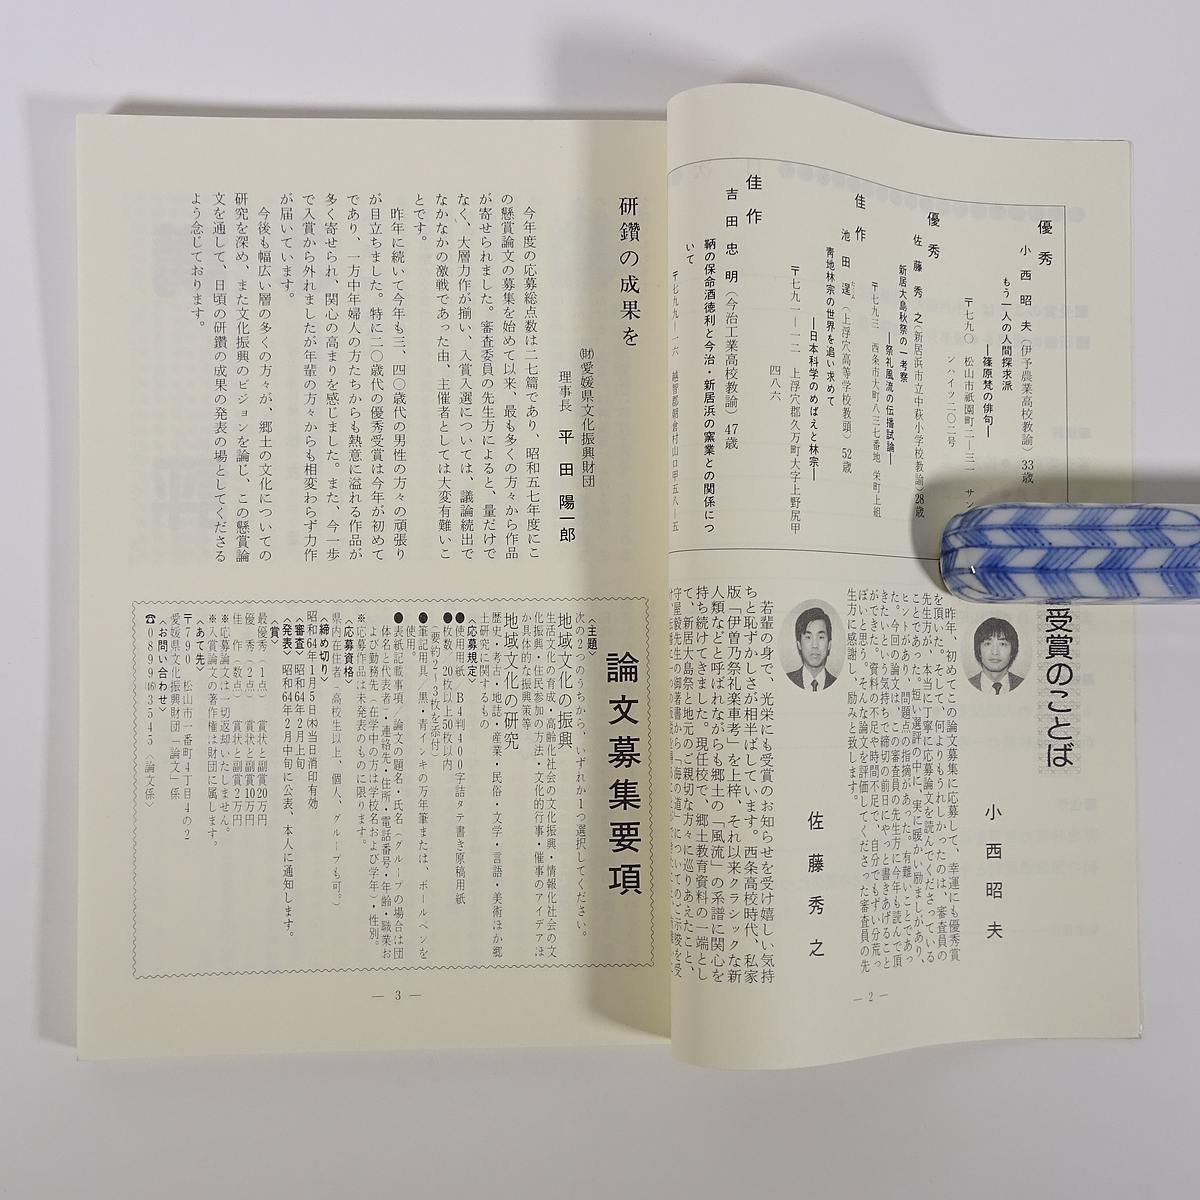 優秀
小西昭夫(伊予農業高校教諭)33歳
もう一人の人間探求派
―篠原梵の俳句―
〒七九〇 松山市祇園町二―三一 サン
ンハイツ二〇二号
優秀
佐藤秀之(新居浜市立中萩小学校教諭)28歳
新居大島秋祭の一考察
―祭礼風流の伝播試論―
〒七九三 西条市大町八三七番地 栄町上組
佳作
池田逞(上浮穴高等学校教頭)52歳
青地林宗の世界を追い求めて
―日本科学のめばえと林宗―
〒七九一―一二 上浮穴郡久万町大字上野尻甲
四八六
佳作
吉田忠明(今治工業高校教諭)47歳
鞆の保命酒徳利と今治・新居浜の窯業との関係につ
いて
〒七九九―一六 越智郡朝倉村山口甲五八―五
受賞のことば
小西昭夫
昨年、初めてこの論文募集に応募して、幸運にも優秀賞
を頂いた。そして、何よりもうれしかったのは、審査員の
先生方が、本当に丁寧に応募論文を読んでくださっている
ことであった。短い選評の中に、実に暖かい励ましがあり、
ヒントがあり、問題点の指摘があった。有難いことであっ
た。今回の論文は、この審査員の先生方に今年も読んで頂
きたいという気持ちで締切の前日にやっと書きあげること
ができた。資料の不足や時間不足で、自分でもずい分荒っ
ぽいと思う。そんな論文を評価してくださった審査員の先
生方に感謝し、励みと致します。
佐藤秀之
若輩の身で、光栄にも受賞のお知らせを受け嬉しい気持
ちと恥ずかしさが相半ばしています。西条高校時代、私家
版「伊曽乃祭礼楽車考」を上梓、それ以来クラシックな新
人類などと呼ばれながらも郷土の「風流」の系譜に関心を
持ち続けてきました。現任校で、郷土教育資料の一端とし
て、新居大島祭と地元のご親切な方々に巡りあえたこと、
守屋毅先生の御著書から「海の道」についてのご示唆を受
― 2 ―
研鑽の成果を
(財)愛媛県文化振興財団
理事長 平田陽一郎
今年度の応募総点数は二七篇であり、昭和五七年度にこ
の懸賞論文の募集を始めて以来、最も多くの方々から作品
が寄せられました。審査委員の先生方によると、量だけで
なく、大層力作が揃い、入賞入選については、議論続出で
なかなかの激戦であった由、主催者としては大変有難いこ
とです。
昨年に続いて今年も三、四〇歳代の男性の方々の頑張り
が目立ちました。特に二〇歳代の優秀受賞は今年が初めて
であり、一方中年婦人の方たちからも熱意に溢れる作品が
多く寄せられ、関心の高まりを感じました。また、今一歩
で入賞から外れましたが年輩の方々からも相変わらず力作
が届いています。
今後も幅広い層の多くの方々が、郷土の文化についての
研究を深め、また文化振興のビジョンを論じ、この懸賞論
文を通して、日頃の研鑽の成果の発表の場としてくださる
よう念じております。
論文募集要項
〈主題〉
次の2つのうちから、いずれか1つ選択してください。
地域文化の振興
生活文化の育成・高齢化社会の文化振興・情報化社会の文
化振興・住民参加の方法・文化的行事・催事のアイデアほ
か具体的な振興策等
地域文化の研究
歴史・考古・地誌・産業・民俗・文学・言語・美術ほか郷
土研究に関するもの
〈応募規定〉
●使用用紙/B4判400字詰タテ書き原稿用紙
●枚数/20枚以上50枚以内
(要約2~3枚を添付)
●筆記用具/黒・青インキの万年筆または、ボールペンを
使用。
●表紙記載事項/論文の題名・氏名(グループの場合は団
体名と代表者)・連絡先・住所・電話番号・年齢・職業お
よび勤務先(在学中の方は学校名および学年)・性別。
※応募作品は未発表のものに限ります。
〈応募資格〉
県内在住者(高校生以上、個人、グループも可。)
〈締め切り〉
昭和64年1月5日(木)当日消印有効
〈審査〉昭和64年2月上旬
〈発表〉昭和64年2月中旬に公表、本人に通知します。
〈賞〉
最優秀(1点) 賞状と副賞20万円
優秀(2点) 賞状と副賞10万円
佳作(数点) 賞状と副賞2万円
※応募論文は一切返却いたしません。
※入賞論文の著作権は財団に属します。
〈あて先〉
〒790 松山市一番町4丁目4の2
愛媛県文化振興財団「論文」係
〈お問い合わせ〉
☎0899(46)3545〈論文係〉
― 3 ―